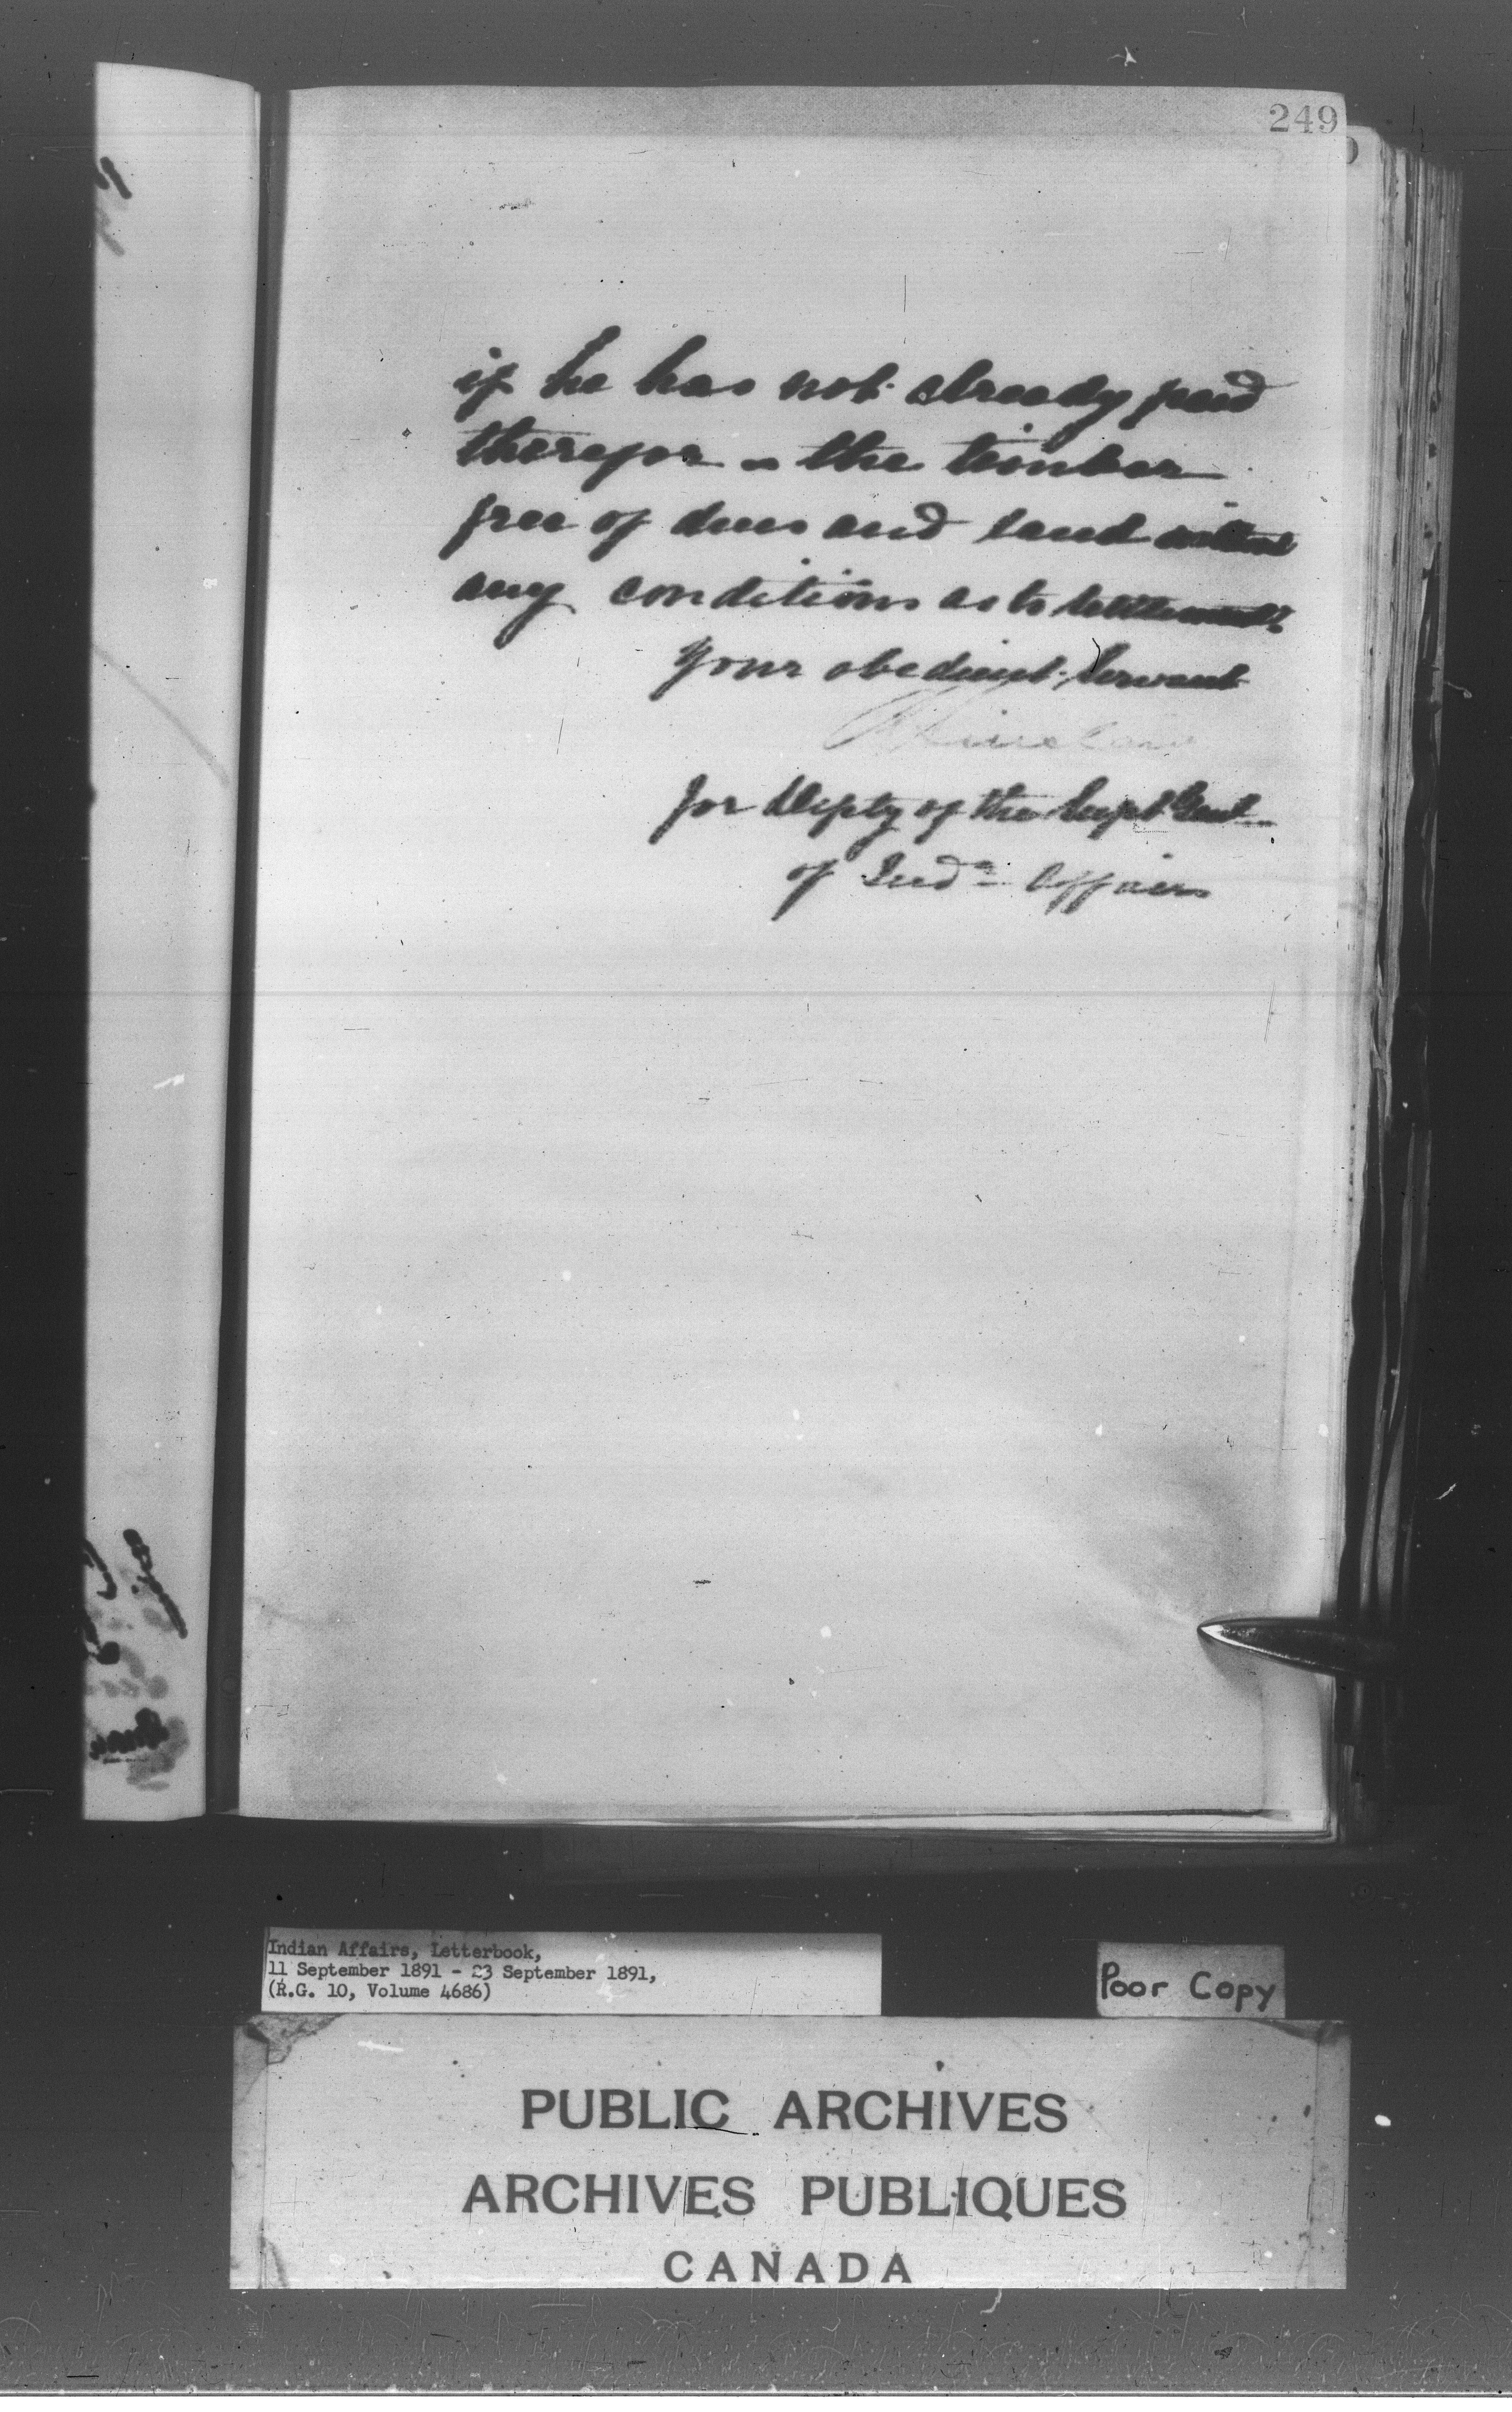 249
if he has not already paid
therefor – the timber
free of dues and land without
any conditions as to settlement.
Your obedient Servant
for Depty of the Supt Genl
of Indn Affairs
Indian Affairs, Letterbook,
11 September 1891 - 23 September 1891,
(R.G. 10, Volume 4686)
Poor Copy
PUBLIC ARCHIVES
ARCHIVES PUBLIQUES
CANADA